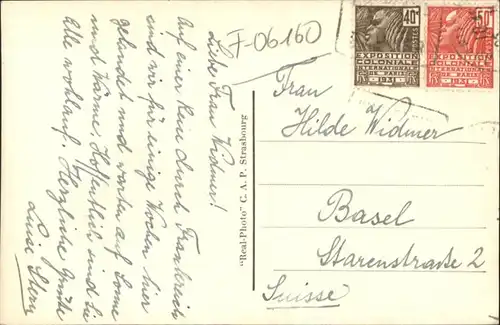 F-06160
Liebe Frau Widmer!
Auf einer Reise durch Frankreich
sind wir für einige Wochen hier
gelandet und warten auf Sonne
und Wärme. Hoffentlich sind Sie
Alle wohlauf. Herzliche Grüße
Luise Stern
"Real-Photo" C. A. P. Strasbourg
40c
POSTES
EXPOSITION
COLONIALE
INTERNATIONALE
DE PARIS
1931
50c
EXPOSITION
COLONIALE
INTERNATIONALE
DE PARIS
1931
Frau
Hilde Widmer
Basel
Starenstraße 2
Suisse